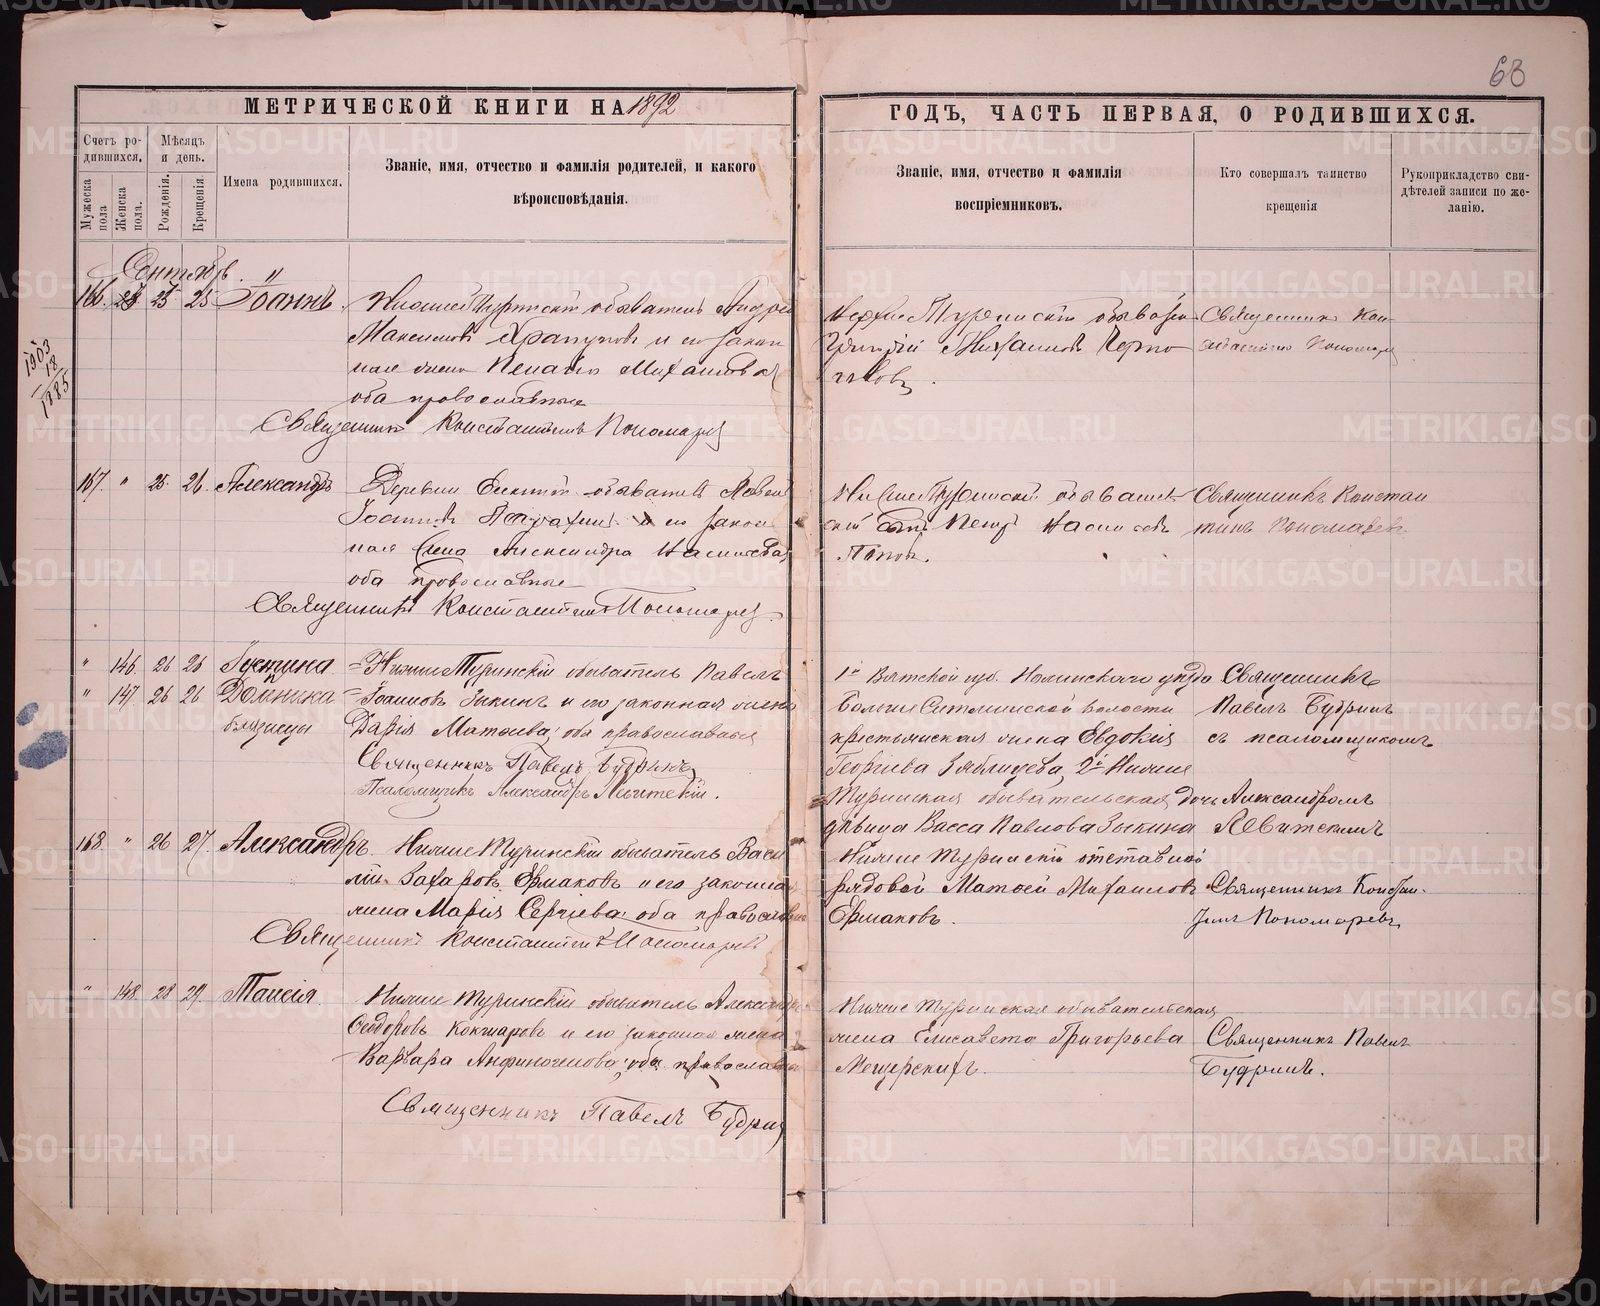 68
МЕТРИЧЕСКОЙ КНИГИ НА 1892
ГОДЪ, ЧАСТЬ ПЕРВАЯ, О РОДИВШИХСЯ.
Счетъ ро-
дившихся.
Мѣсяцъ
и день.
Мужеска
пола
Женска
пола.
Рожденія.
Крещенія
Имена родившихся.
Званіе, имя, отчество и фамилія родителей, и какого
вѣроисповѣданія.
Званіе, имя, отчество и фамилія
воспріемниковъ.
Кто совершалъ таинство
крещенія
Рукоприкладство сви-
дѣтелей записи по же-
ланію.
Сентябрь
166. 25 25 Іоаннъ. обыватель Андрей
Максимовъ Храпуновъ и его закон
ная жена Михаилова
оба православные
Священникъ Константинъ Пономаревъ
Григорій Михаиловъ
Священникъ Кон-
стантинъ Пономарев
1903
18
1885
167. " 25. 26. Александръ Деревни обыватель
Іоанновъ и его закон
ная жена Александра
оба православные
Священникъ Константинъ Пономарев
Нижнетуринскій обыватель-
скій сынъ Петръ
Поповъ.
Священникъ Констан
тинъ Пономаревъ
" 146 26 26 Іустина = Нижне Туринскій обыватель Павелъ
" 147 26 26 Домника = Іоанновъ Зыкинъ и его законная жена
близнецы Дарія Матѳіева; оба православныя
Священникъ Павелъ Будринъ
Псаломщикъ Александръ Левитскій.
1я Вятской губ. Нолинскаго уѣзда
Больше Ситминской волости
крестьянская жена Евдокія
Георгіева Зяблицева, 2я Нижне
Туринская обывательская дочь
дѣвица Васса Павлова Зыкина
Священникъ
Павелъ Будринъ
съ псаломщикомъ
Александромъ
Левитскимъ
168. " 26 27. Александръ. Нижне Туринскій обыватель Васи
лій Захаровъ Ермаковъ и его законная
жена Марія Сергіева; оба православн
Священникъ Константинъ Пономаревъ
Нижне Туринскій отставной
рядовой Матѳей Михаиловъ
Ермаковъ.
Священникъ Констан-
тинъ Пономаревъ
" 148. 28 29. Таисія. Нижне Туринскій обыватель Алекс
Сидоровъ Кокшаровъ и его законная жена
Варвара Анфиногенова; оба православн
Священникъ Павелъ Будрин
Нижне Туринская обывательская
жена Елисавета Григорьева
Мещерскихъ.
Священникъ Павелъ
Будринъ.
METRIKI.GASO-URAL.RU